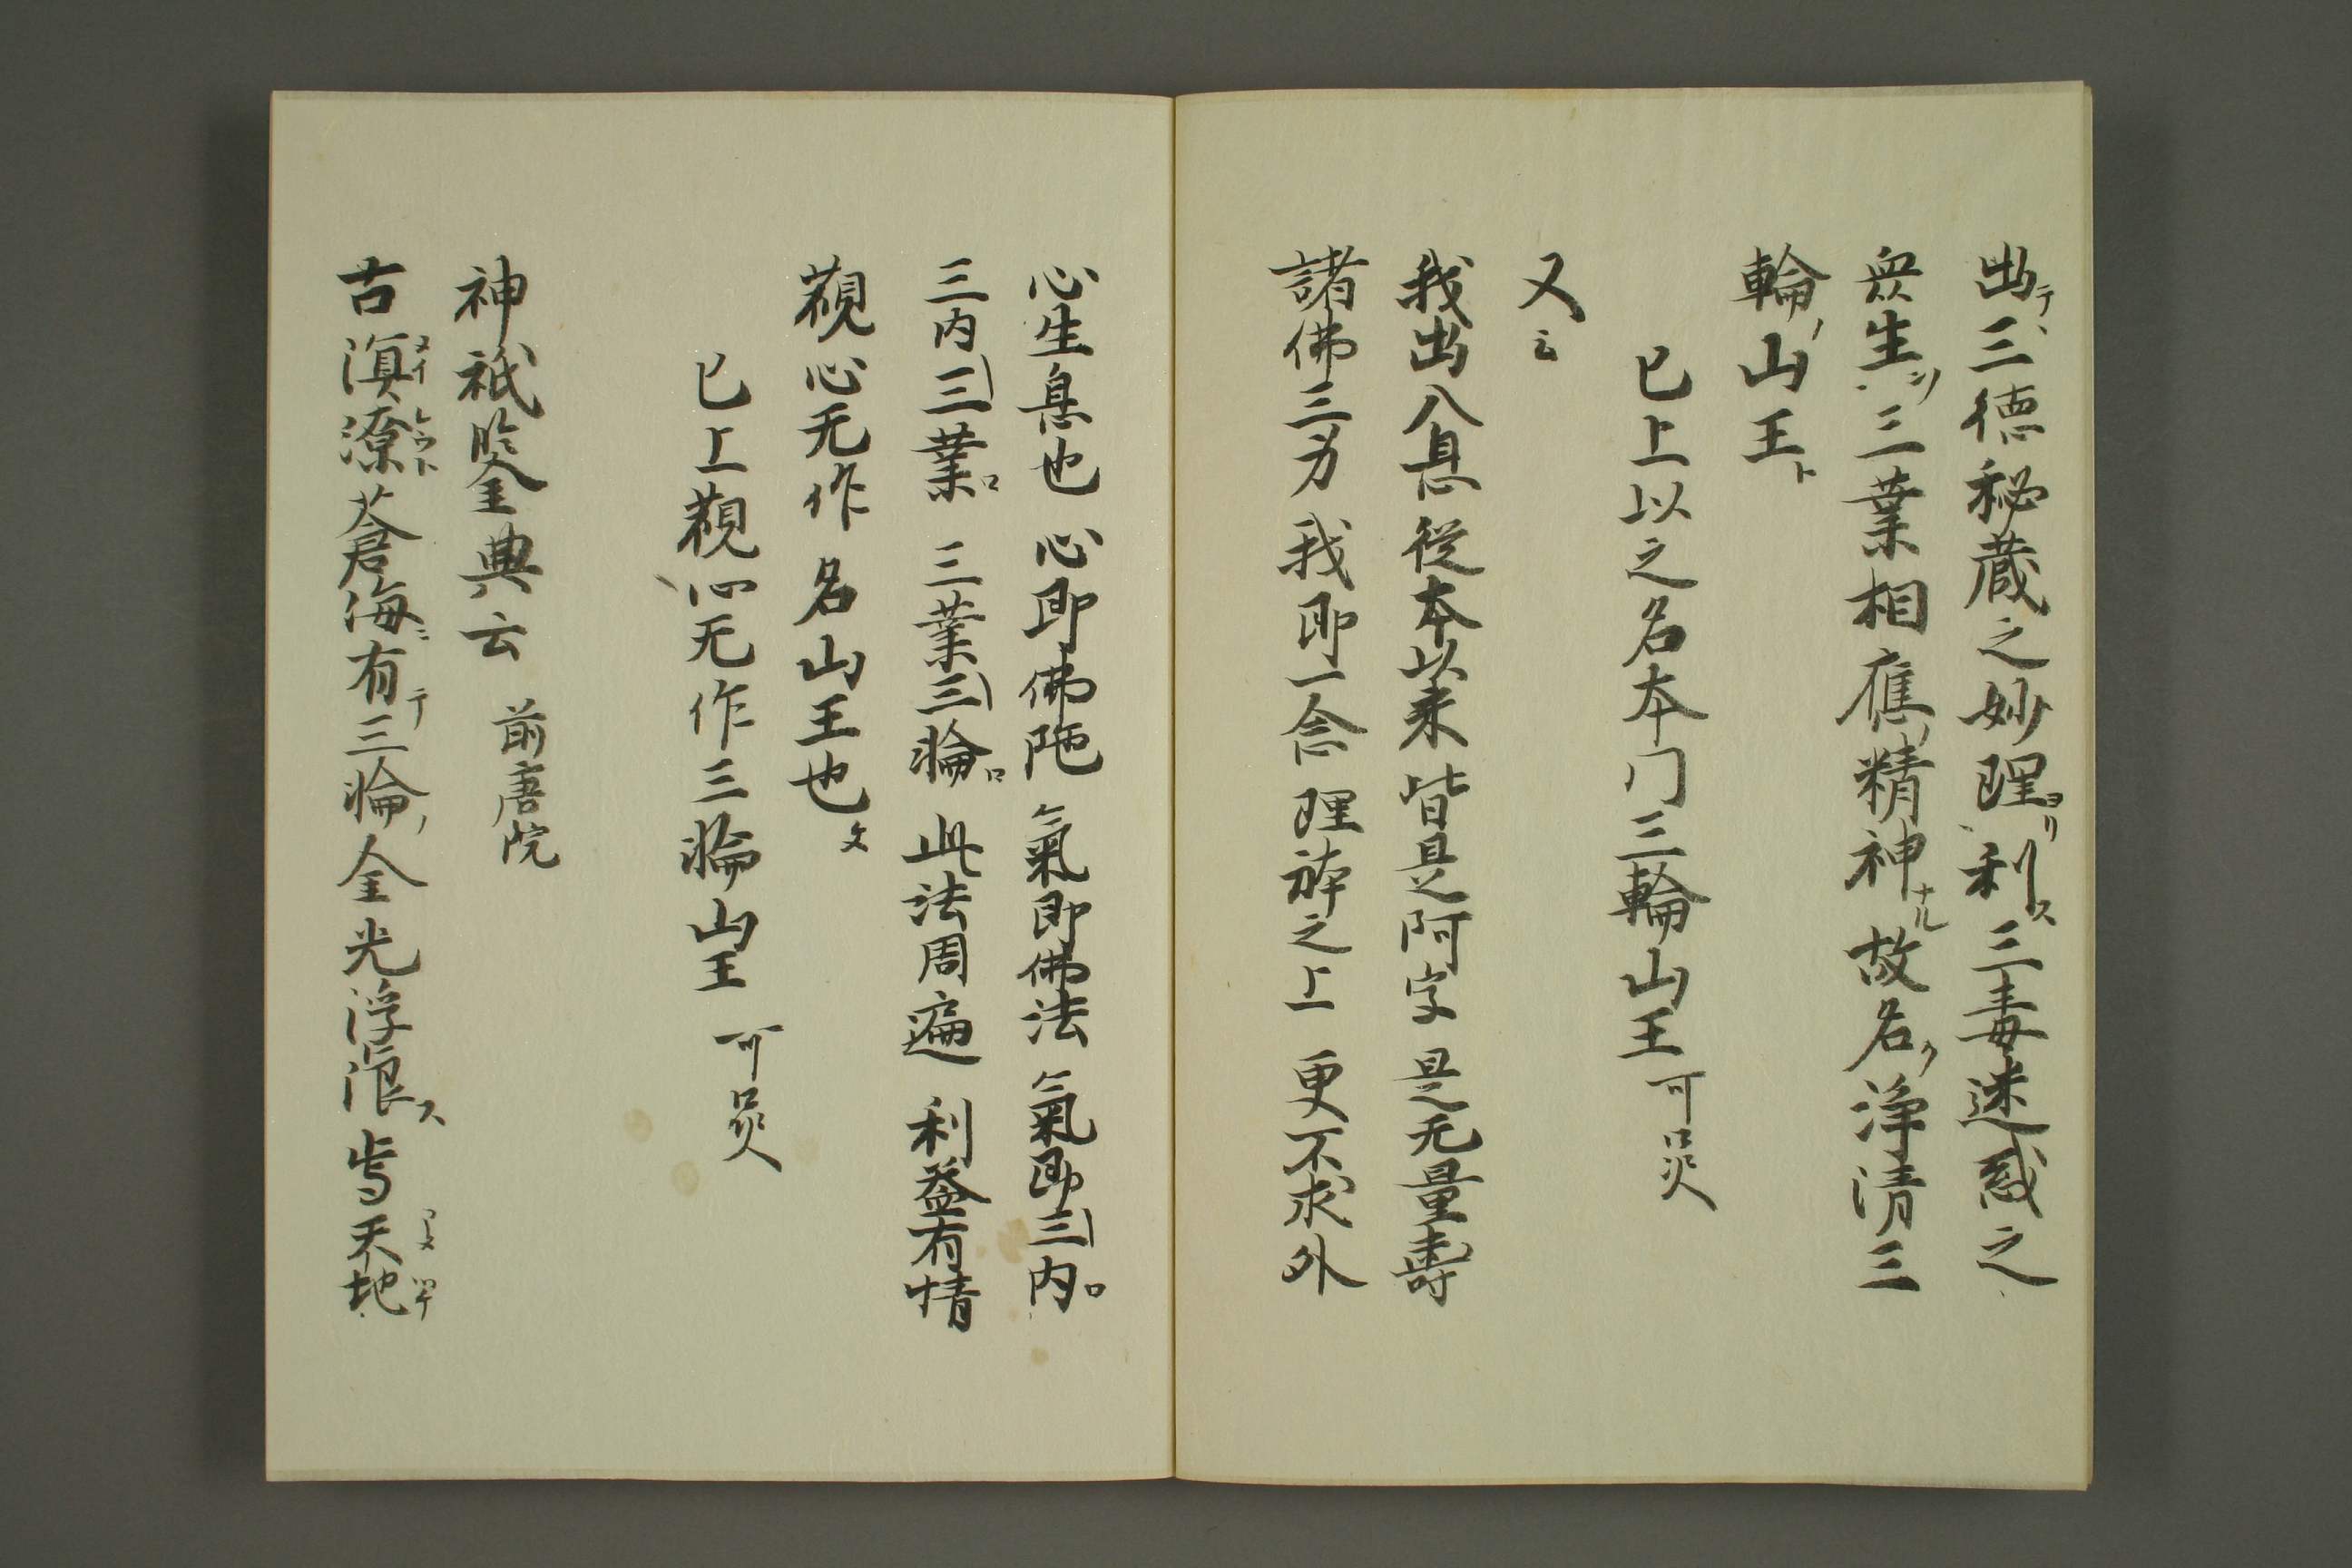 出テ三德秘蔵之妙理ヨリ利ス三毒迷惑之
衆生ヲ三葉相應精神ナル故名ク浄清三
輪ノ山王ト
已上以之名本门三輪山王可炅
又云
我出入息従本以来皆是阿字是无量壽
諸佛三身我即一念理㳒之上更不求外
心生息也心即佛陁氣即佛法氣即三内口
三内三葉口三葉三輪口此法周遍利益有情
觀心无作名山王也文
已上觀心无作三輪山王可炅
神祇鑒典云前唐院
古溟メイ潦レウト蒼海ニ有テ三輪ノ金光浮浪ス与天地